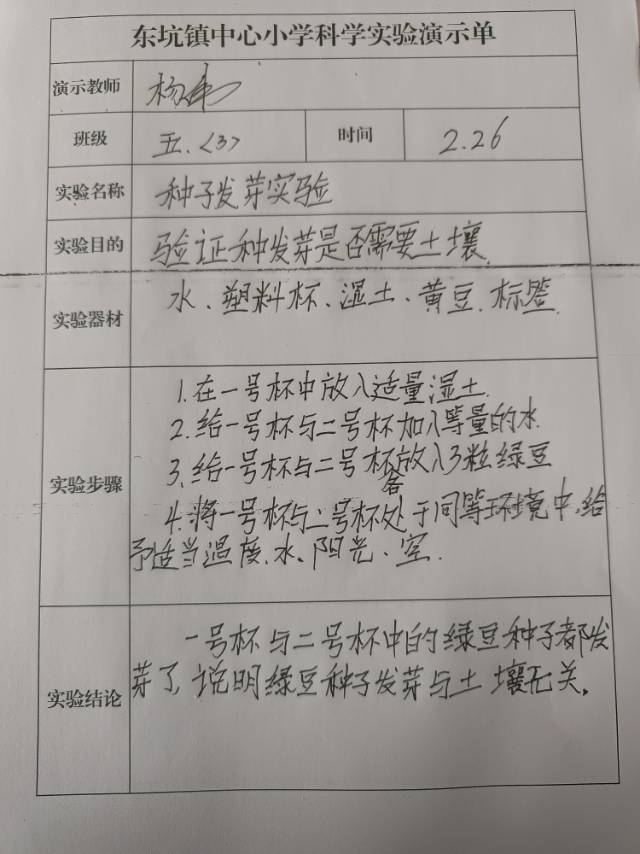 东坑镇中心小学科学实验演示单
演示教师 杨
班级 五.〈3〉 时间 2.26
实验名称 种子发芽实验
实验目的 验证种发芽是否需要土壤.
实验器材 水、塑料杯、湿土、黄豆.标签
实验步骤
1.在一号杯中放入适量湿土.
2.给一号杯与二号杯加入等量的水.
3.给一号杯与二号杯各放入3粒绿豆
4.将一号杯与二号杯处于同等环境中,给
予适当温度、水、阳光、空.
实验结论
一号杯与二号杯中的绿豆种子都发
芽了,说明绿豆种子发芽与土壤无关。